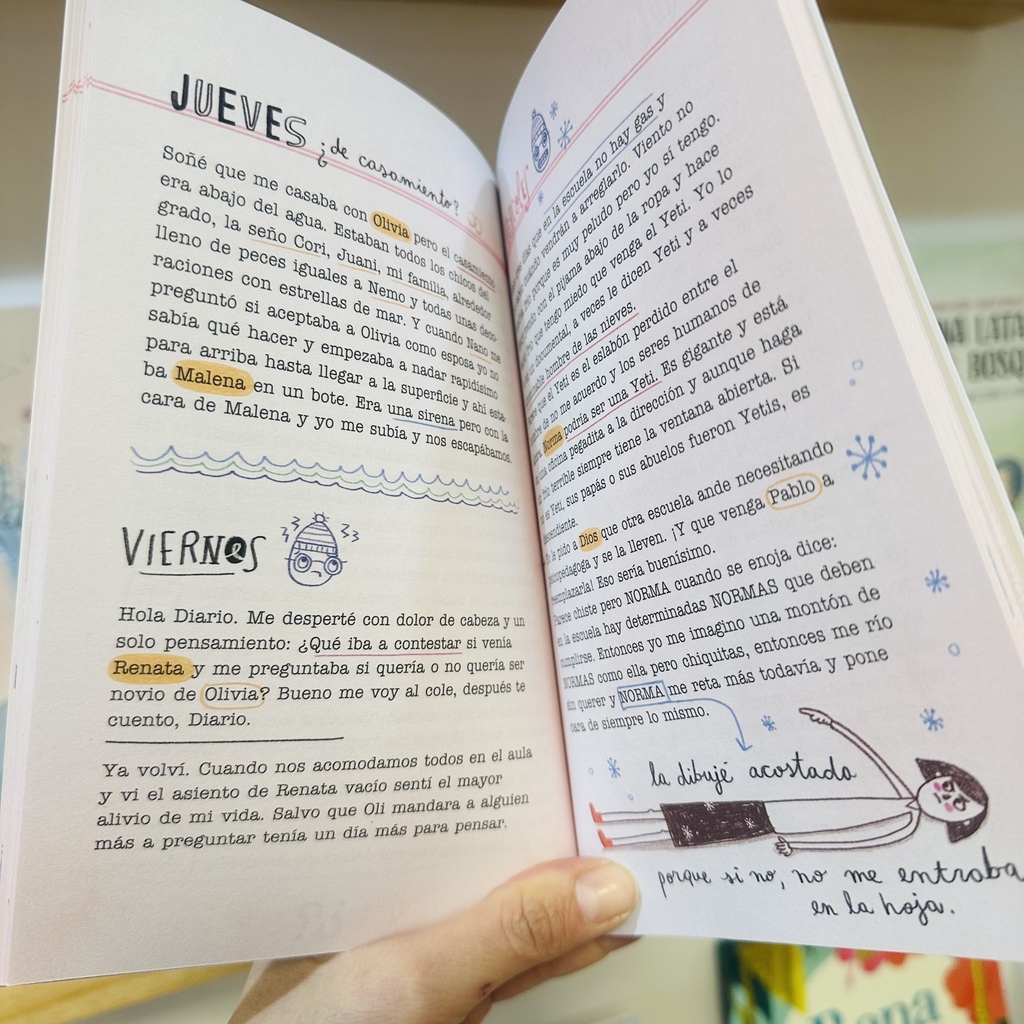 JUEVES ¿de casamiento?
Soñé que me casaba con Olivia pero el casamiento
era abajo del agua. Estaban todos los chicos del
grado, la seño Cori, Juani, mi familia, alrededor
lleno de peces iguales a Nemo y todas unas deco-
raciones con estrellas de mar. Y cuando Nano me
preguntó si aceptaba a Olivia como esposa yo no
sabía qué hacer y empezaba a nadar rapidísimo
para arriba hasta llegar a la superficie y ahí esta-
ba Malena en un bote. Era una sirena pero con la
cara de Malena y yo me subía y nos escapábamos.
VIERNES
Hola Diario. Me desperté con dolor de cabeza y un
solo pensamiento: ¿Qué iba a contestar si venía
Renata y me preguntaba si quería o no quería ser
novio de Olivia? Bueno me voy al cole, después te
cuento, Diario.
Ya volví. Cuando nos acomodamos todos en el aula
y vi el asiento de Renata vacío sentí el mayor
alivio de mi vida. Salvo que Oli mandara a alguien
más a preguntar tenía un día más para pensar.
que en la escuela no hay gas y
vendrán a arreglarlo. Viento no
porque es muy peludo pero yo sí tengo.
con el pijama abajo de la ropa y hace
que tengo miedo que venga el Yeti. Yo lo
documental, a veces le dicen Yeti y a veces
hombre de las nieves.
que el Yeti es el eslabón perdido entre el
de no me acuerdo y los seres humanos de
Norma podría ser una Yeti. Es gigante y está
oficina pegadita a la dirección y aunque haga
frío terrible siempre tiene la ventana abierta. Si
es Yeti, sus papás o sus abuelos fueron Yetis, es
le pido a Dios que otra escuela ande necesitando
psicopedagoga y se la lleven. ¡Y que venga Pablo a
reemplazarla! Eso sería buenísimo.
Parece chiste pero NORMA cuando se enoja dice:
en la escuela hay determinadas NORMAS que deben
cumplirse. Entonces yo me imagino una montón de
NORMAS como ella pero chiquitas, entonces me río
sin querer y NORMA me reta más todavía y pone
cara de siempre lo mismo.
la dibujé acostada
porque si no, no me entraba
en la hoja.
LATA
BOSQ